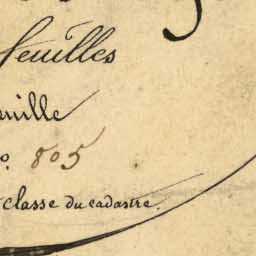 feuilles
euille
o. 805
classe du cadastre.